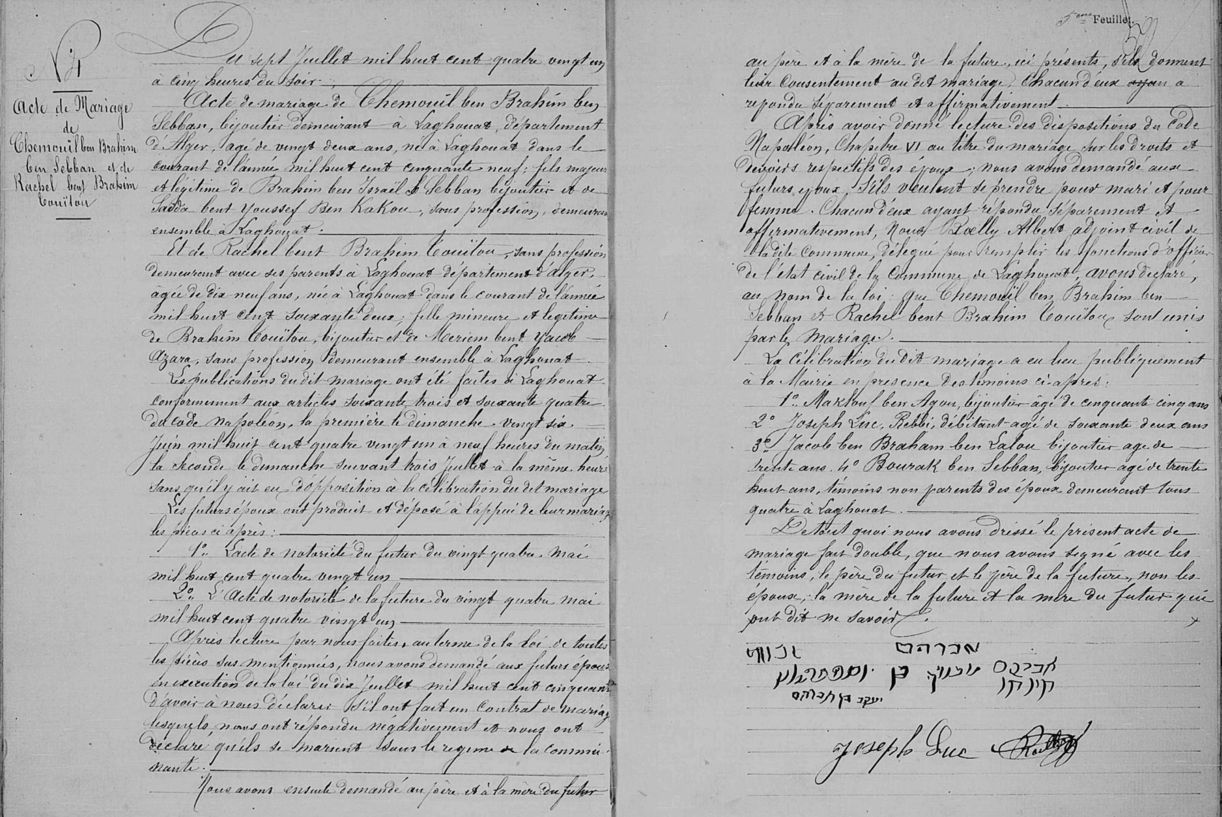 N° 4
Acte de Mariage
de
Chemouïl ben Brahim
ben Sebban et de
Rachel bent Brahim
Touïtou
Du sept Juillet mil huit cent quatre vingt un
à cinq heures du soir.
Acte de mariage de Chemouïl ben Brahim ben
Sebban, bijoutier demeurant à Laghouat, département
d'Alger, âgé de vingt deux ans, né à Laghouat dans le
courant de l'année mil huit cent cinquante neuf; fils majeur
et légitime de Brahim ben Israël Sebban bijoutier et de
Saâda bent Youssef Ben Kakou, sans profession, demeurant
ensemble à Laghouat.
Et de Rachel bent Brahim Touïtou, sans profession
demeurant avec ses parents à Laghouat département d'Alger,
âgée de dix neuf ans, né à Laghouat dans le courant de l'année
mil huit cent soixante deux; fille mineure et légitime
de Brahim Touïtou, bijoutier et de Meriem bent Yacob
Azara, sans profession demeurant ensemble à Laghouat
Les publications du dit mariage ont été faites à Laghouat
conformement aux articles soixante trois et soixante quatre
du code napoléon, la première le dimanche vingt six
Juin mil huit cent quatre vingt un à neuf heures du matin,
la seconde le dimanche suivant trois Juillet à la même heure
sans qu'il y ait eu d'opposition à la célébration du dit mariage
Les futurs époux ont produit et déposé à l'appui de leur mariage
les pièces ci après:
1° L'acte de notoriété du futur du vingt quatre mai
mil huit cent quatre vingt un
2° L'Acte de notoriété de la future du vingt quatre mai
mil huit cent quatre vingt un
Après lecture par nous faites, au terme de la loi de toutes
les pièces sus mentionnées, nous avons demandé aux futurs époux
en execution de la loi du dix Juillet mil huit cent cinquante
d'avoir à nous déclarer s'il ont fait un contrat de mariage
lesquels, nous ont répondu négativement et nous ont
déclaré qu'ils se marient sous le regime de la commu-
nauté.
Nous avons ensuite demandé au père et à la mère du futur
5eme Feuillet.
au père et à la mère de la future, ici présents, s'ils donnent
leur Consentement au dit mariage, Chacun d'eux ayan a
repondu séparement et affirmativement.
Après avoir donné lecture des dispositions du Code
Napoléon, Chapitre VI au titre du mariage sur les droits et
devoirs respectifs des époux, nous avons demandé aux
futurs époux, s'ils veulent se prendre pour mari et pour
femme. Chacun d'eux ayant répondu séparement et
affirmativement, Nous Roelly Albert adjoint civil de
la dite Commune, délégué pour remplir les fonctions d'officier
de l'état civil de la Commune de Laghouat, avons déclaré,
au nom de la loi que Chemouïl ben Brahim ben
Sebban et Rachel bent Brahim Touïtou sont unis
par le mariage.
La Célébration du dit mariage a eu lieu publiquement
à la Mairie en présence des témoins ci après:
1° Maklouf ben Azou, bijoutier âgé de cinquante cinq ans
2° Joseph Luc, Rebbi, débitant agé de soixante deux ans
3° Jacob ben Braham ben Lalou bijoutier age de
trente ans. 4° Bourak ben Sebban, bijoutier agé de trente
huit ans, témoins non parents des époux demeurant tous
quatre à Laghouat.
De tout quoi nous avons dressé le présent acte de
mariage fait double, que nous avons signé avec les
témoins, le père du futur et le père de la future, non les
époux, la mère de la future et la mère du futur qui
ont dit ne savoir.
אברהם
אברהם
בן
יעקב בן אברהם
Joseph Luc